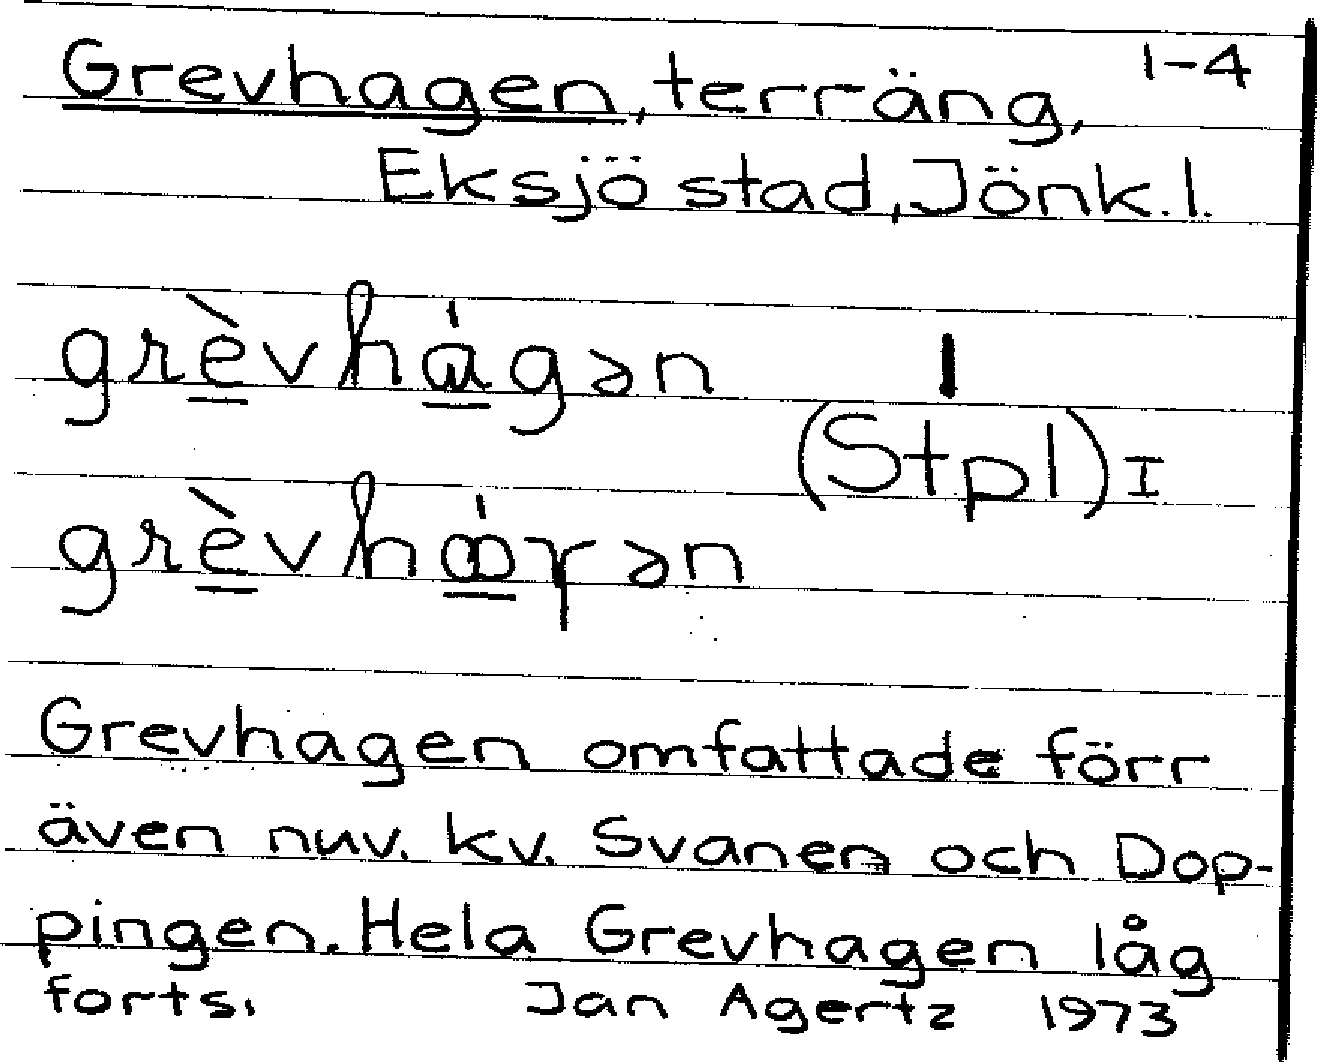 Grevhagen, terräng, 1-4
Eksjö stad, Jönk. l.
grèvhágən I
(Stpl) I
grèvhɷ́ɤən
Grevhagen omfattade förr
även nuv. kv. Svanen och Dop-
pingen. Hela Grevhagen låg
forts. Jan Agertz 1973